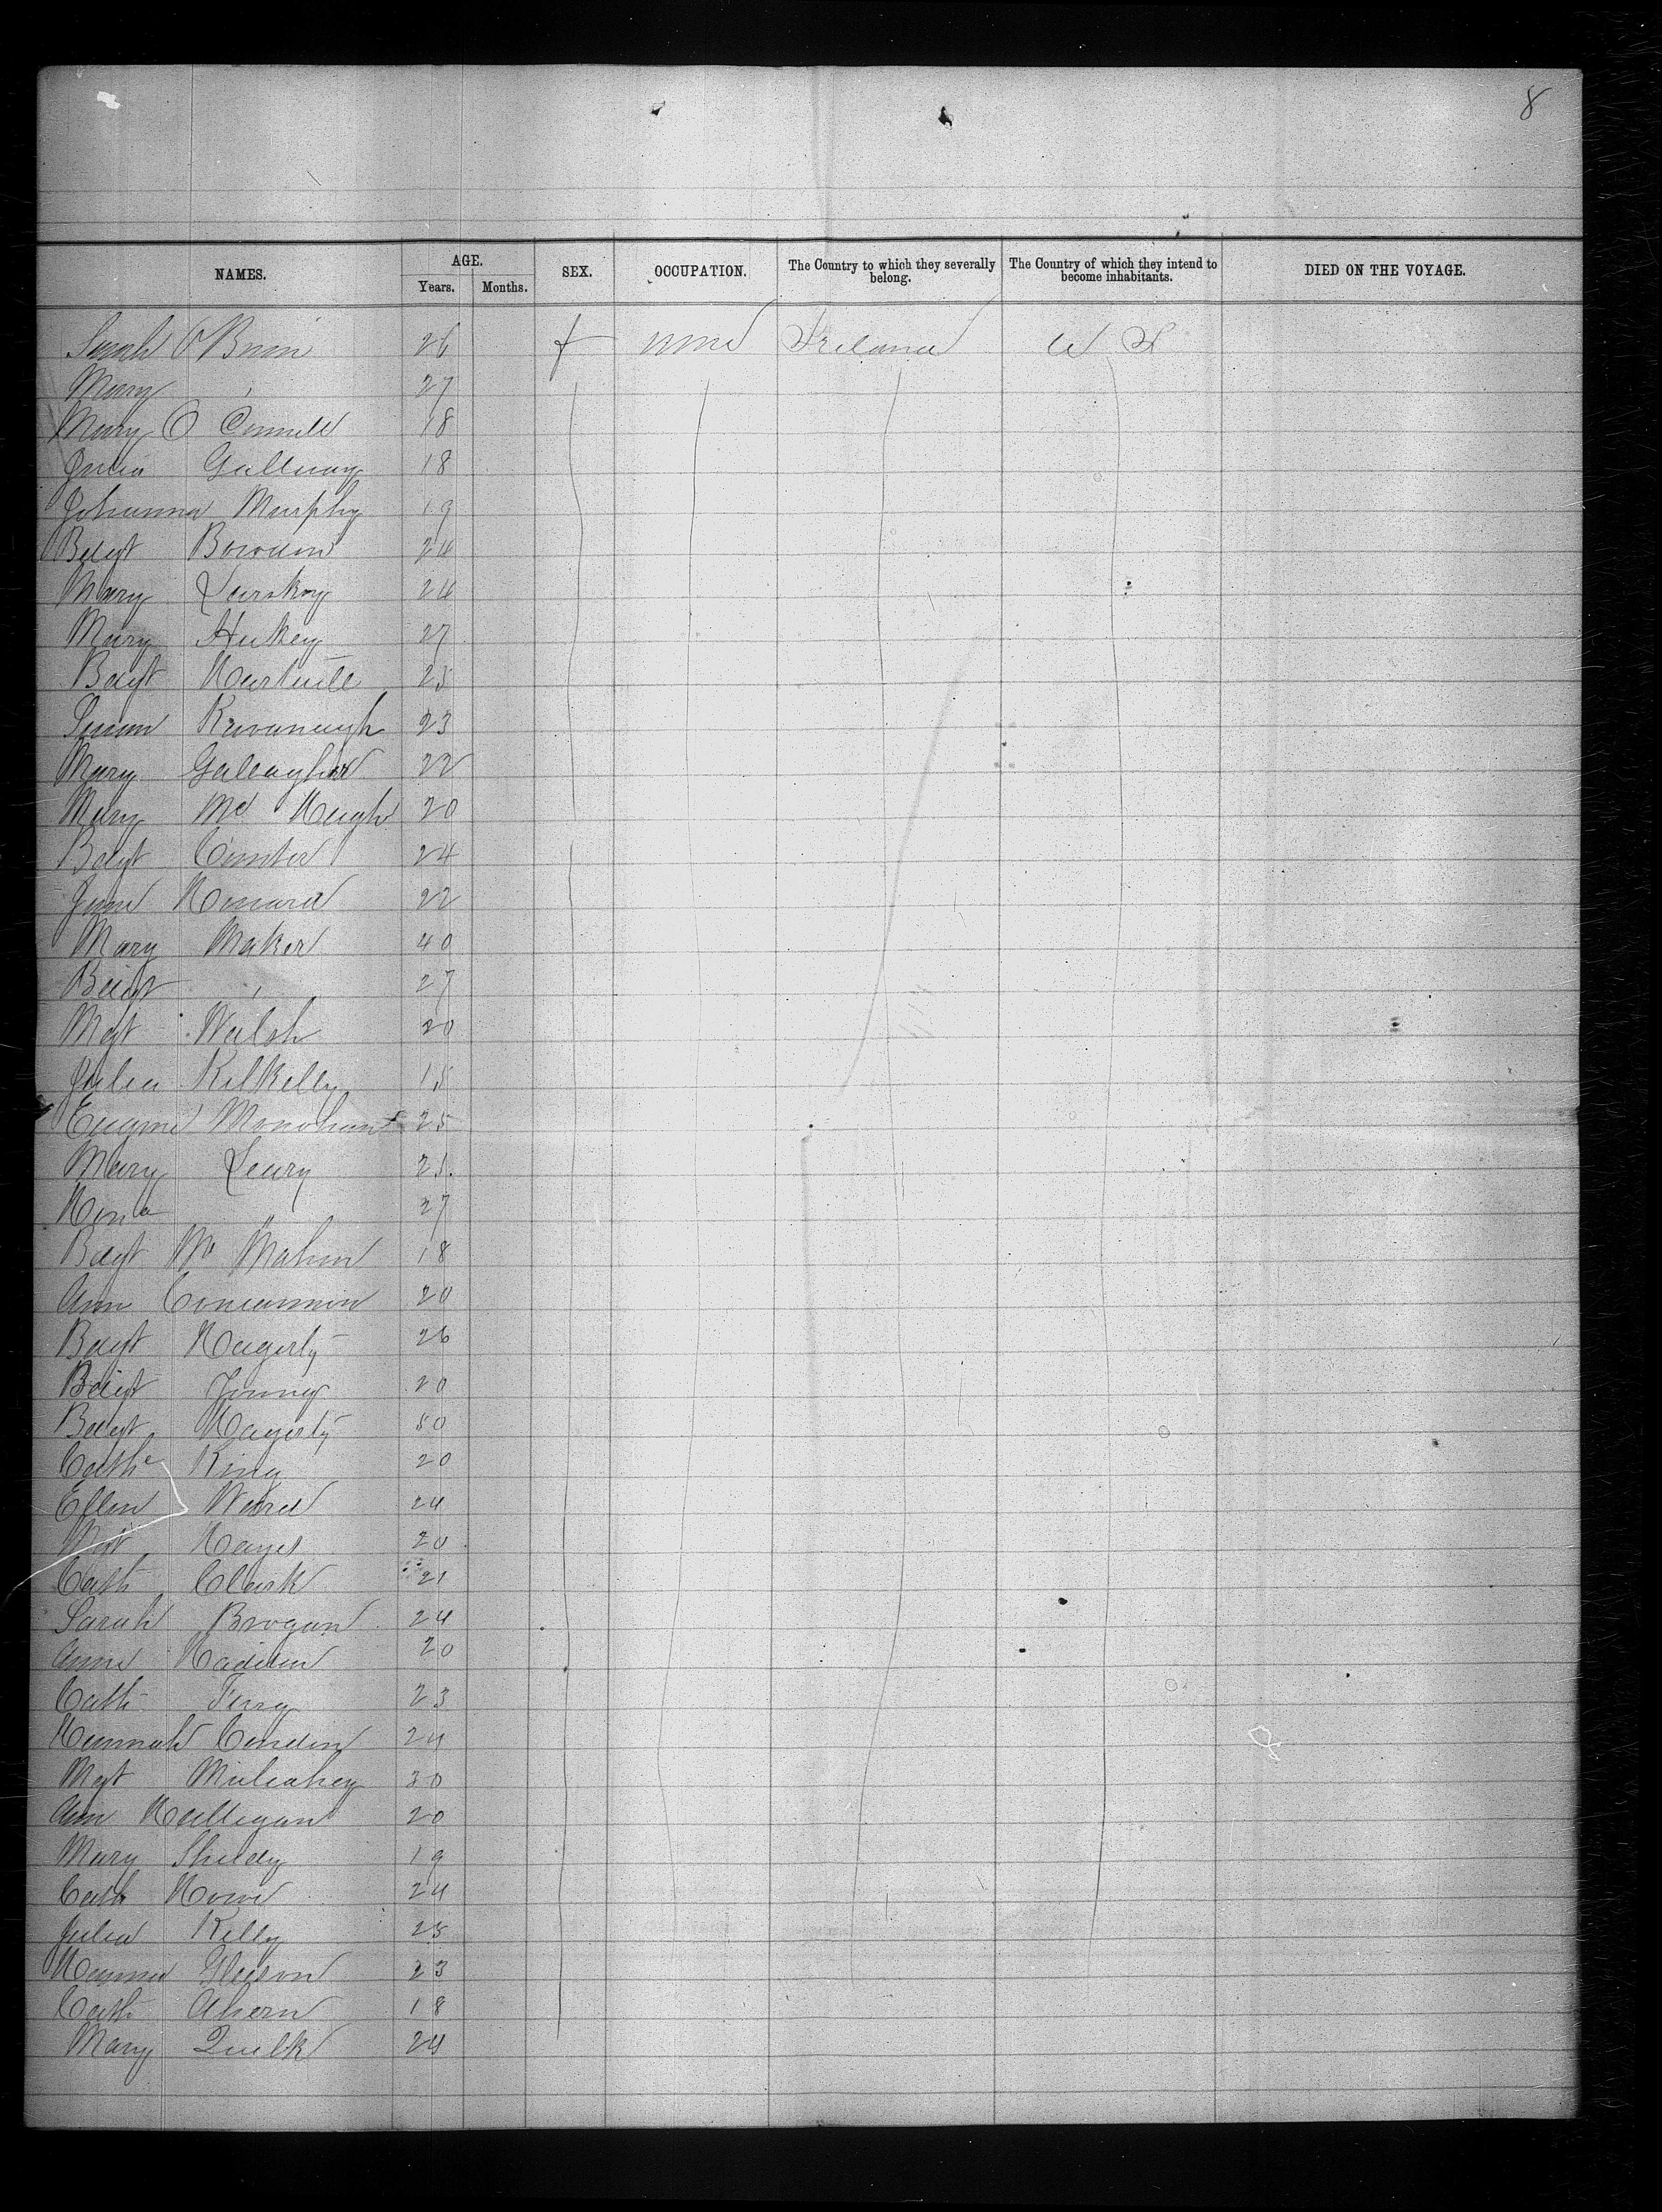 8
NAMES. AGE. SEX. OCCUPATION. The Country to which they severally belong. The Country of which they intend to become inhabitants. DIED ON THE VOYAGE.
Years. Months.
Sarah O Brien 26 f none Ireland U S
Mary " 27
Mary O Connell 18
Julia Gallway 18
Johanna Murphy 19
Bdgt 24
Mary 24
Mary Hickey 27
Bdgt 25
Susan Kavanaugh 23
Mary Gallagher 22
Mary Mc Hugh 20
Bdgt 24
Jane Howard 22
Mary Maher 40
Bdgt " 27
Mgt Walsh 20
Julia Kilkelly 15
Monohan 25
Mary Leary 21
Hona " 27
Bdgt Mc Mahon 18
Ann Concannon 20
Bdgt Hagerty 26
Bdgt 20
Bdgt Hagerty 50
Cathe King 20
Ellen Ward 24
Mgt Hayes 20
Cath Clark 21
Sarah Brogan 24
Anne 20
Cath 23
Hannah Condon 24
Mgt Mulcahey 30
Ann Halligan 20
Mary Sheedy 19
Cath 24
Julia Kelly 25
Hanna Gleeson 23
Cath Ahern 18
Mary Quilk 24